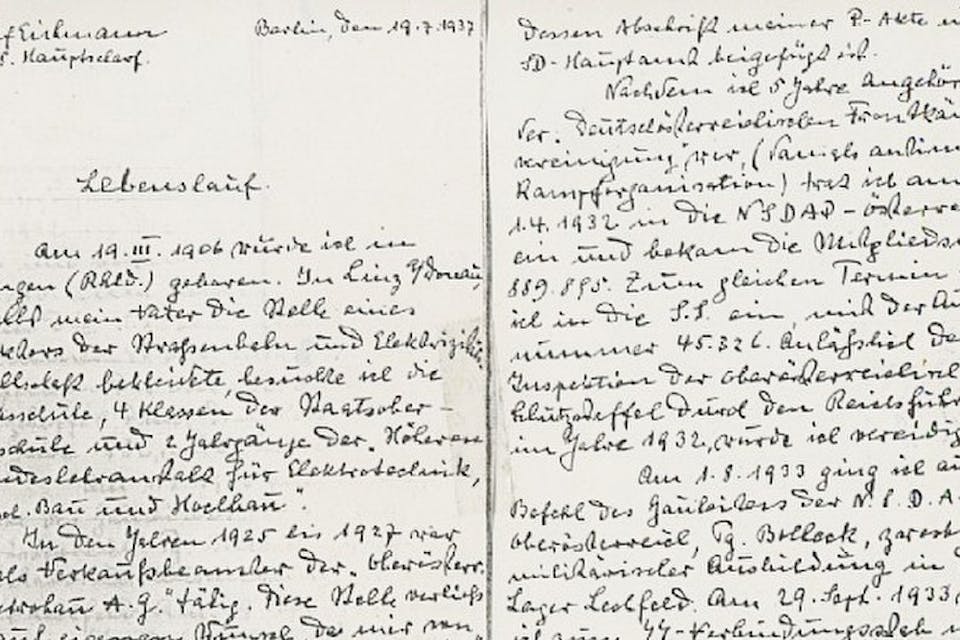 f Eichmann
Berlin, den 19.7.1937
S. Hauptscharf.
Lebenslauf.
Am 19. III. 1906 wurde ich in
ngen (Rhld.) geboren. In Linz a/Donau,
mein Vater die Stelle eines
ktors der Strassenbahn und Elektrizitäts
llschaft bekleidete, besuchte ich die
sschule, 4 Klassen der Staatsober-
schule und 2 Jahrgänge der "Höheren
ndeslehranstalt für Elektrotechnik,
Bau und Hochbau".
In den Jahren 1925 bis 1927 war
als Verkaufsbeamter der "Oberösterr.
ktrobau A.G." tätig. Diese Stelle verliess
eigenen Wunsch, da mir von
dessen Abschrift meiner P-Akte
SD-Hauptamt beigefügt ist.
Nachdem ich 5 Jahre Angehör
der "Deutschösterreichischen Frontkäm
vereinigung" war, (damals antim
Kampforganisation) trat ich am
1.4.1932 in die NSDAP-Österre
ein und bekam die Mitglieds
889.895. Zum gleichen Termin
ich in die S.S. ein, mit der Au
nummer 45.326. Anläßlich de
Inspektion der oberösterreichisch
Schutzstaffel durch den Reichsführ
im Jahre 1932, wurde ich vereidig
Am 1.8.1933 ging ich au
Befehl des Gauleiters der N.S.D.A.
Oberösterreich, Pg. Bolleck, zwecks
militärischer Ausbildung in
Lager Lechfeld. Am 29. Sept. 1933
ich zum SS-Verbindungsstab